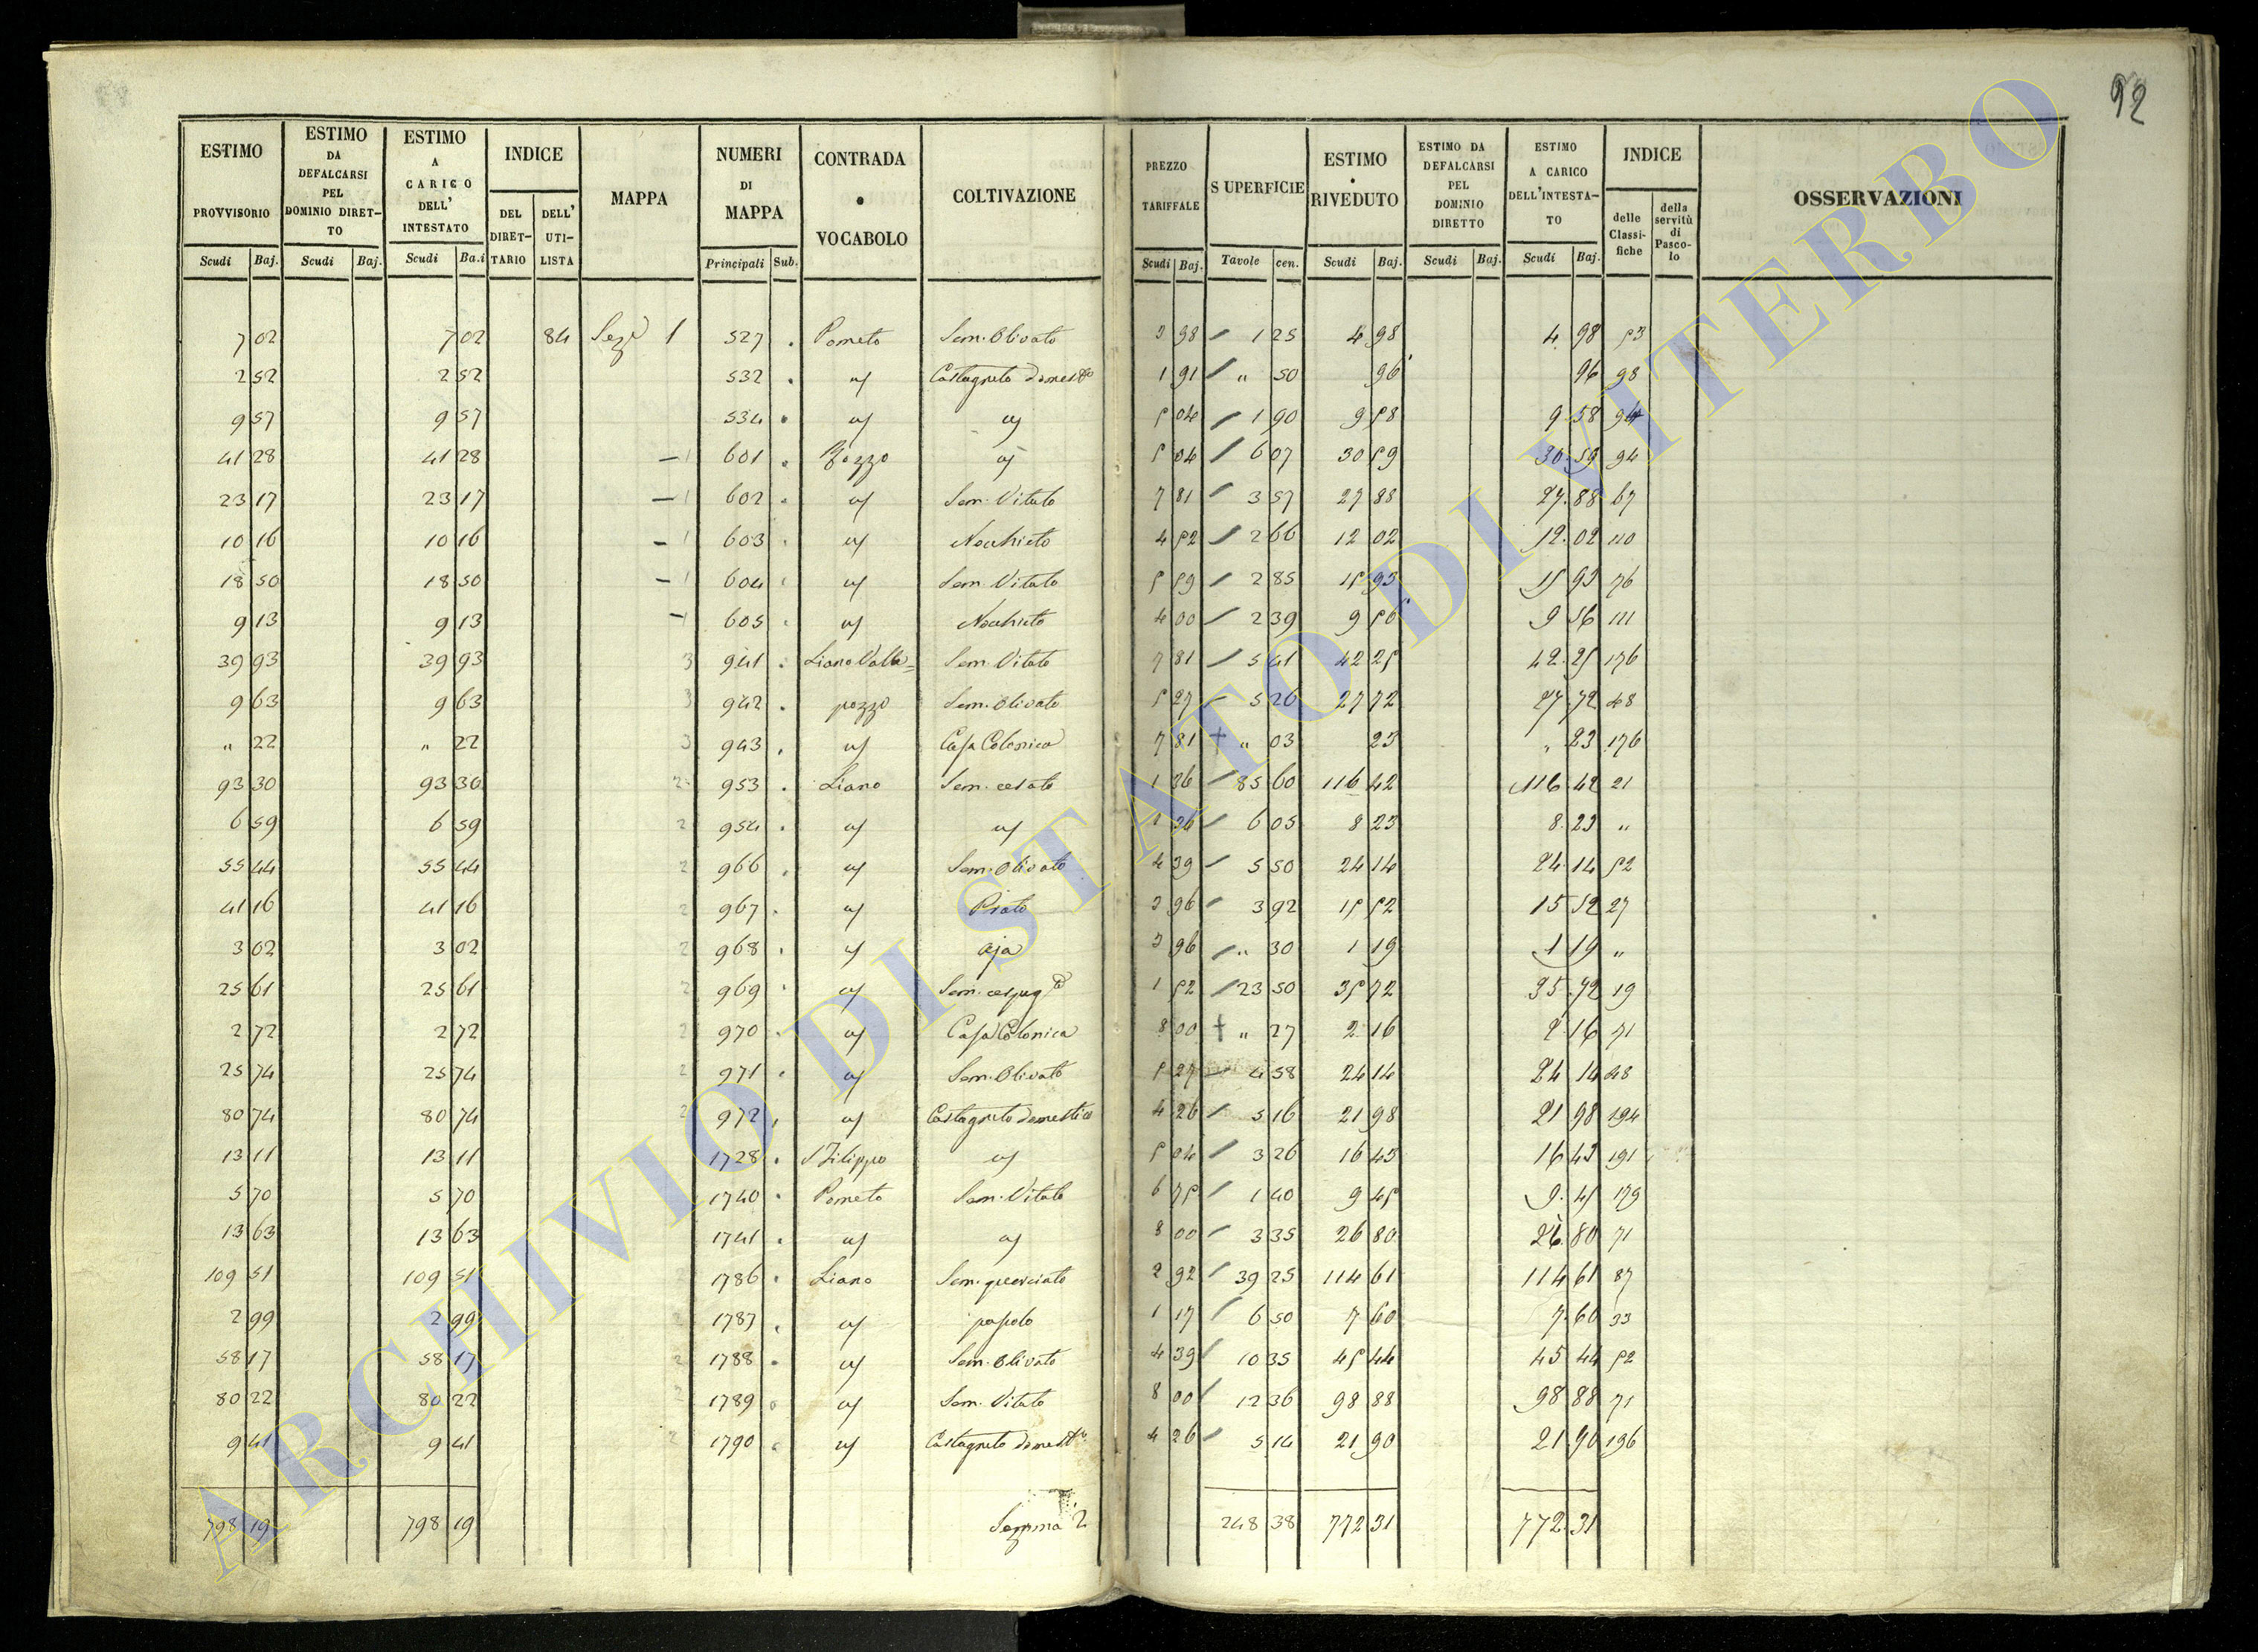 92
ESTIMO PROVVISORIO | ESTIMO DA DEFALCARSI PEL DOMINIO DIRET-TO | ESTIMO A CARICO DELL' INTESTATO | INDICE | MAPPA | NUMERI DI MAPPA | CONTRADA o VOCABOLO | COLTIVAZIONE | PREZZO TARIFFALE | SUPERFICIE | ESTIMO RIVEDUTO | ESTIMO DA DEFALCARSI PEL DOMINIO DIRETTO | ESTIMO A CARICO DELL'INTESTA-TO | INDICE | OSSERVAZIONI
DEL DIRET-TARIO | DELL' UTI-LISTA | delle Classi-fiche | della servitù di Pasco-lo
Scudi | Baj. | Scudi | Baj. | Scudi | Ba.i | Principali | Sub. | Scudi | Baj. | Tavole | cen. | Scudi | Baj. | Scudi | Baj. | Scudi | Baj.
7 02 | 7 02 | 84 | Sez. 1 | 527 | Pometo | Sem. Olivato | 3 98 | 1 25 | 4 98 | 4 98 | 53
2 52 | 2 52 | 532 | " | Castagneto domestco | 1 91 | " 50 | 96 | 96 | 98
9 57 | 9 57 | 534 | " | " | 5 04 | 1 90 | 9 58 | 9 58 | 94
41 28 | 41 28 | 1 | 601 | Pozzo | " | 5 04 | 6 07 | 30 59 | 30 59 | 94
23 17 | 23 17 | 1 | 602 | " | Sem. Vitato | 7 81 | 3 57 | 27 88 | 27 88 | 67
10 16 | 10 16 | 1 | 603 | " | Nochieto | 4 52 | 2 66 | 12 02 | 12 02 | 110
18 50 | 18 50 | 1 | 604 | " | Sem. Vitato | 5 59 | 2 85 | 15 93 | 15 93 | 76
9 13 | 9 13 | 1 | 605 | " | Nochieto | 4 00 | 2 39 | 9 56 | 9 56 | 111
39 93 | 39 93 | 3 | 941 | Liano Valle= | Sem. Vitato | 7 81 | 5 41 | 42 25 | 42 25 | 176
9 63 | 9 63 | 3 | 942 | pozzo | Sem. Olivato | 5 27 | 5 26 | 27 72 | 27 72 | 48
" 22 | " 22 | 3 | 943 | " | Casa Colonica | 7 81 | + " 03 | 23 | " 23 | 176
93 30 | 93 30 | 2 | 953 | Liano | Sem. cesato | 1 36 | 85 60 | 116 42 | 116 42 | 21
6 59 | 6 59 | 2 | 954 | " | " | 1 36 | 6 05 | 8 23 | 8 23 | "
55 44 | 55 44 | 2 | 966 | " | Sem. Olivato | 4 39 | 5 50 | 24 14 | 24 14 | 52
41 16 | 41 16 | 2 | 967 | " | Prato | 3 96 | 3 92 | 15 52 | 15 52 | 27
3 02 | 3 02 | 2 | 968 | " | Aja | 3 96 | " 30 | 1 19 | 1 19 | "
25 61 | 25 61 | 2 | 969 | " | Sem. cespug to | 1 52 | 23 50 | 35 72 | 35 72 | 19
2 72 | 2 72 | 2 | 970 | " | Casa Colonica | 8 00 | + " 27 | 2 16 | 2 16 | 71
25 74 | 25 74 | 2 | 971 | " | Sem. Olivato | 5 27 | 4 58 | 24 14 | 24 14 | 48
80 74 | 80 74 | 2 | 972 | " | Castagneto domestico | 4 26 | 5 16 | 21 98 | 21 98 | 194
13 11 | 13 11 | 1728 | S Filippo | " | 5 04 | 3 26 | 16 43 | 16 43 | 191
5 70 | 5 70 | 1740 | Pometo | Sem. Vitato | 6 75 | 1 40 | 9 45 | 9 45 | 179
13 63 | 13 63 | 1741 | " | " | 8 00 | 3 35 | 26 80 | 26 80 | 71
109 51 | 109 51 | 2 | 1786 | Liano | Sem. querciato | 2 92 | 39 25 | 114 61 | 114 61 | 87
2 99 | 2 99 | 2 | 1787 | " | pascolo | 1 17 | 6 50 | 7 60 | 7 60 | 33
58 17 | 58 17 | 2 | 1788 | " | Sem. Olivato | 4 39 | 10 35 | 45 44 | 45 44 | 52
80 22 | 80 22 | 2 | 1789 | " | Sem. Vitato | 8 00 | 12 36 | 98 88 | 98 88 | 71
9 41 | 9 41 | 2 | 1790 | " | Castagneto domestco | 4 26 | 5 14 | 21 90 | 21 90 | 196
798 19 | 798 19 | Somma 2 | 248 38 | 772 31 | 772 31
ARCHIVIO DI STATO DI VITERBO